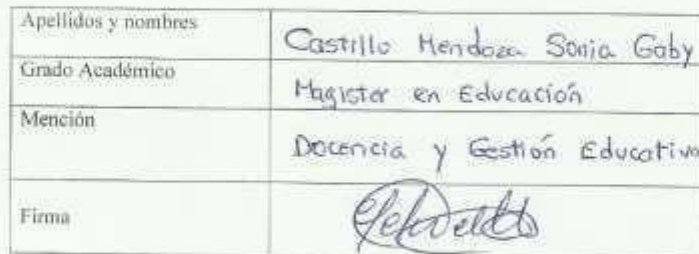 Apellidos y nombres
Castillo Mendoza Sonia Gaby
Grado Académico
Magister en Educación
Mención
Docencia y Gestión Educativa
Firma